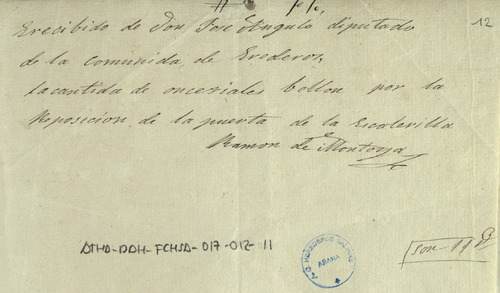 12
Erecibido de Don Jose Angulo diputado
de la comunida, de Erederos,
lacantida de onceriales bellon por la
Reposicion de la puerta de la Escalerilla
Ramon de Montoya
ATHA-DAH-FCHSA-017-012-11
ARANA
son 11 R